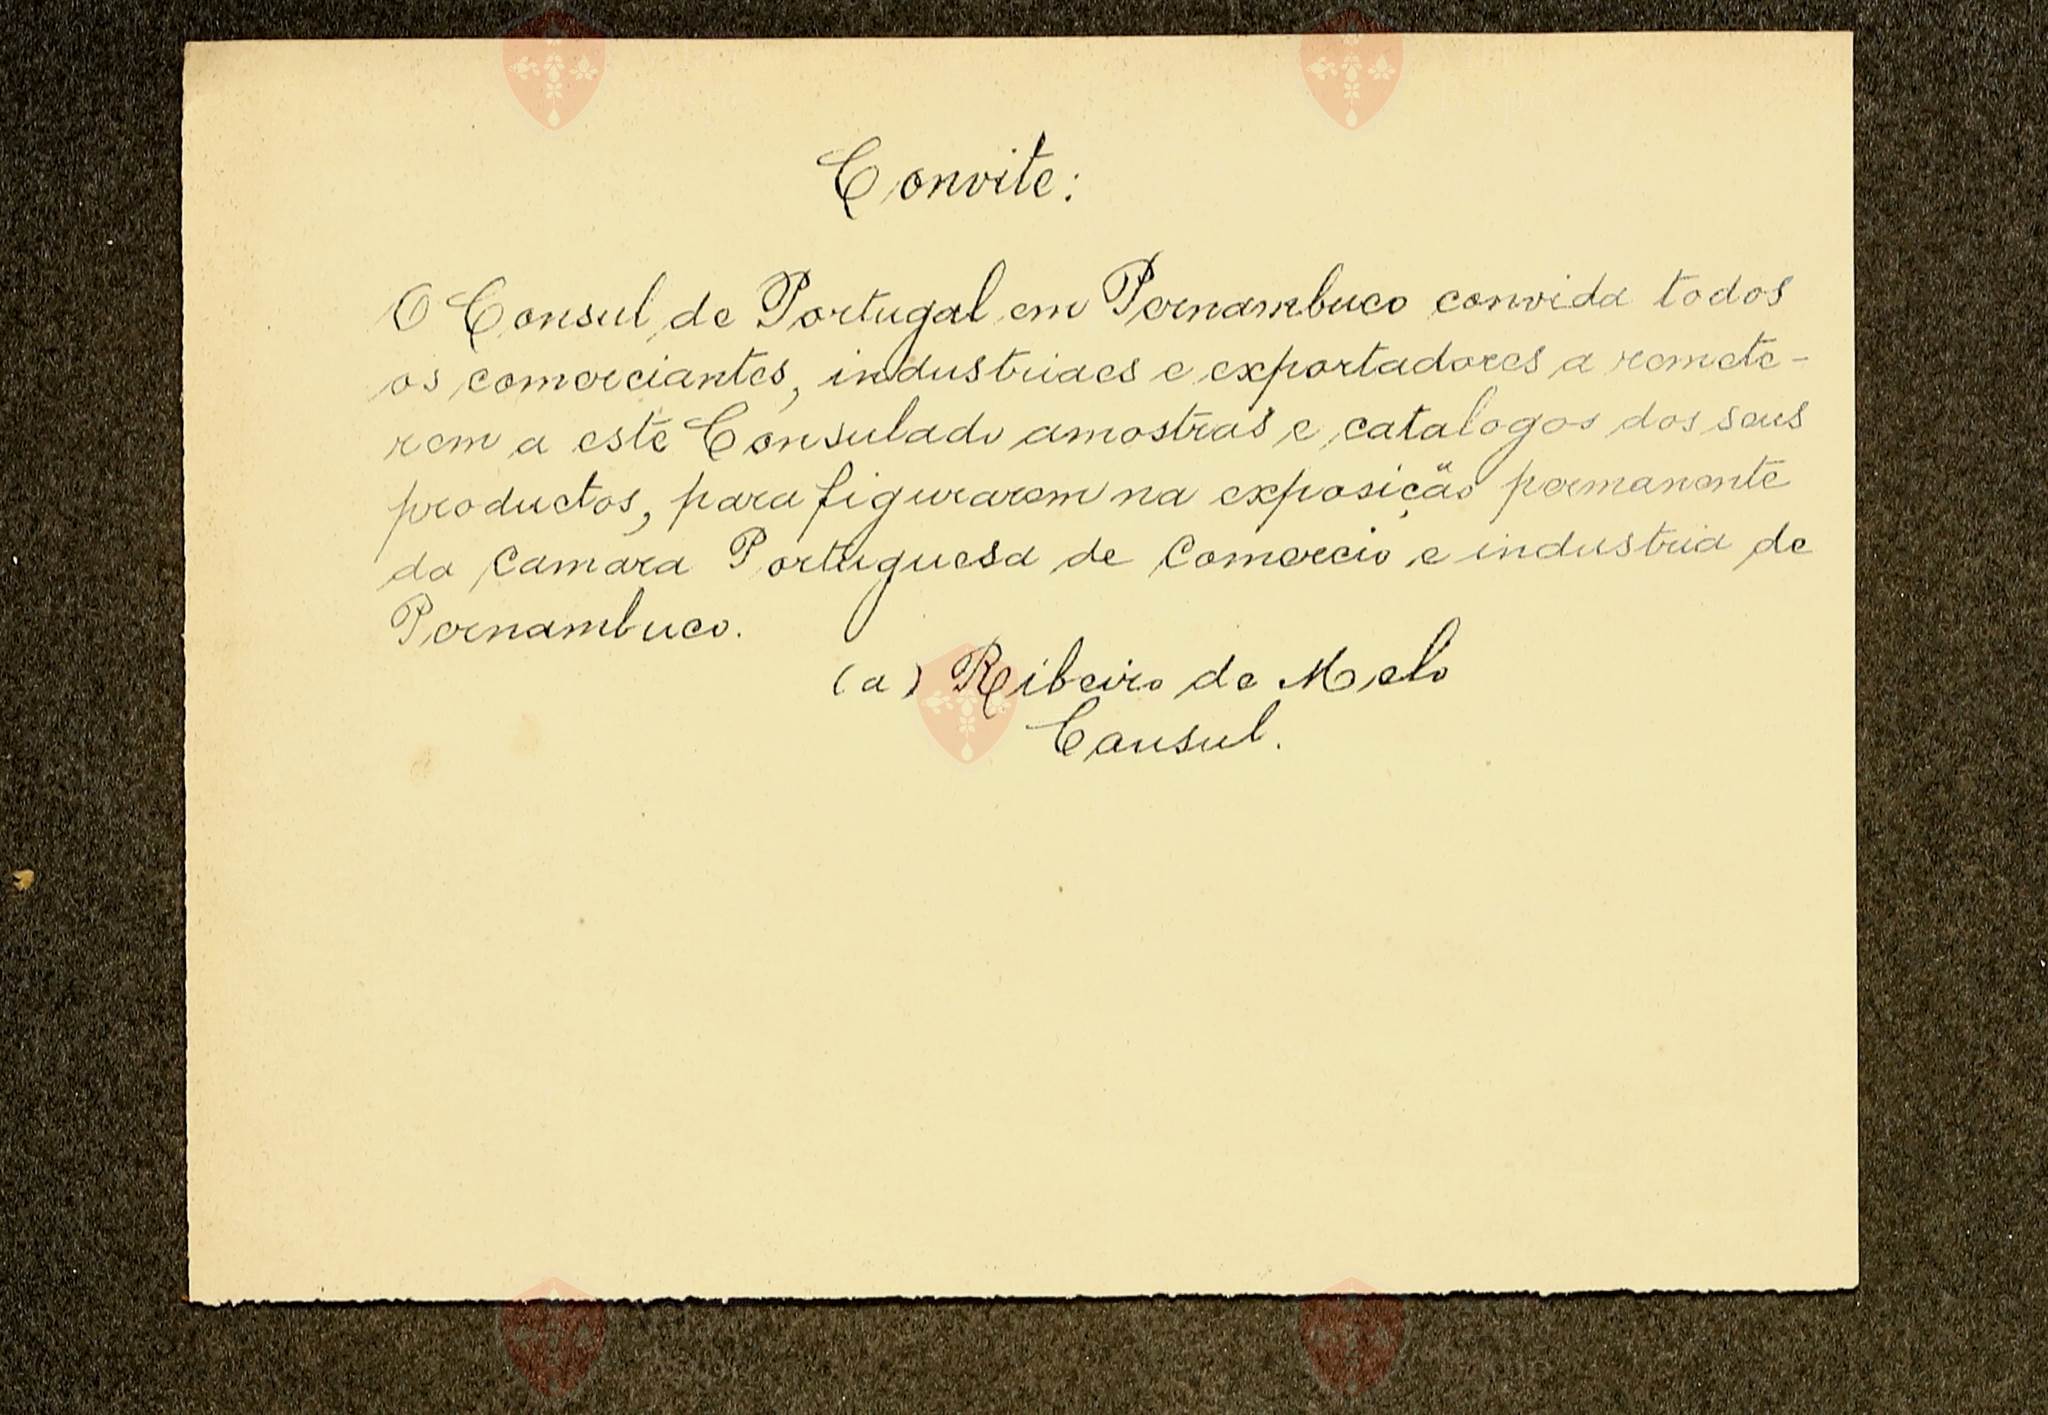 Convite:
O Consul de Portugal em Pernambuco convida todos
os comerciantes, industriaes e exportadores a remete-
rem a este Consulado amostras e catalogos dos seus
productos, para figurarem na exposição permanente
da Camara Portuguesa de Comercio e industria de
Pernambuco.
(a) Ribeiro de Melo
Consul.